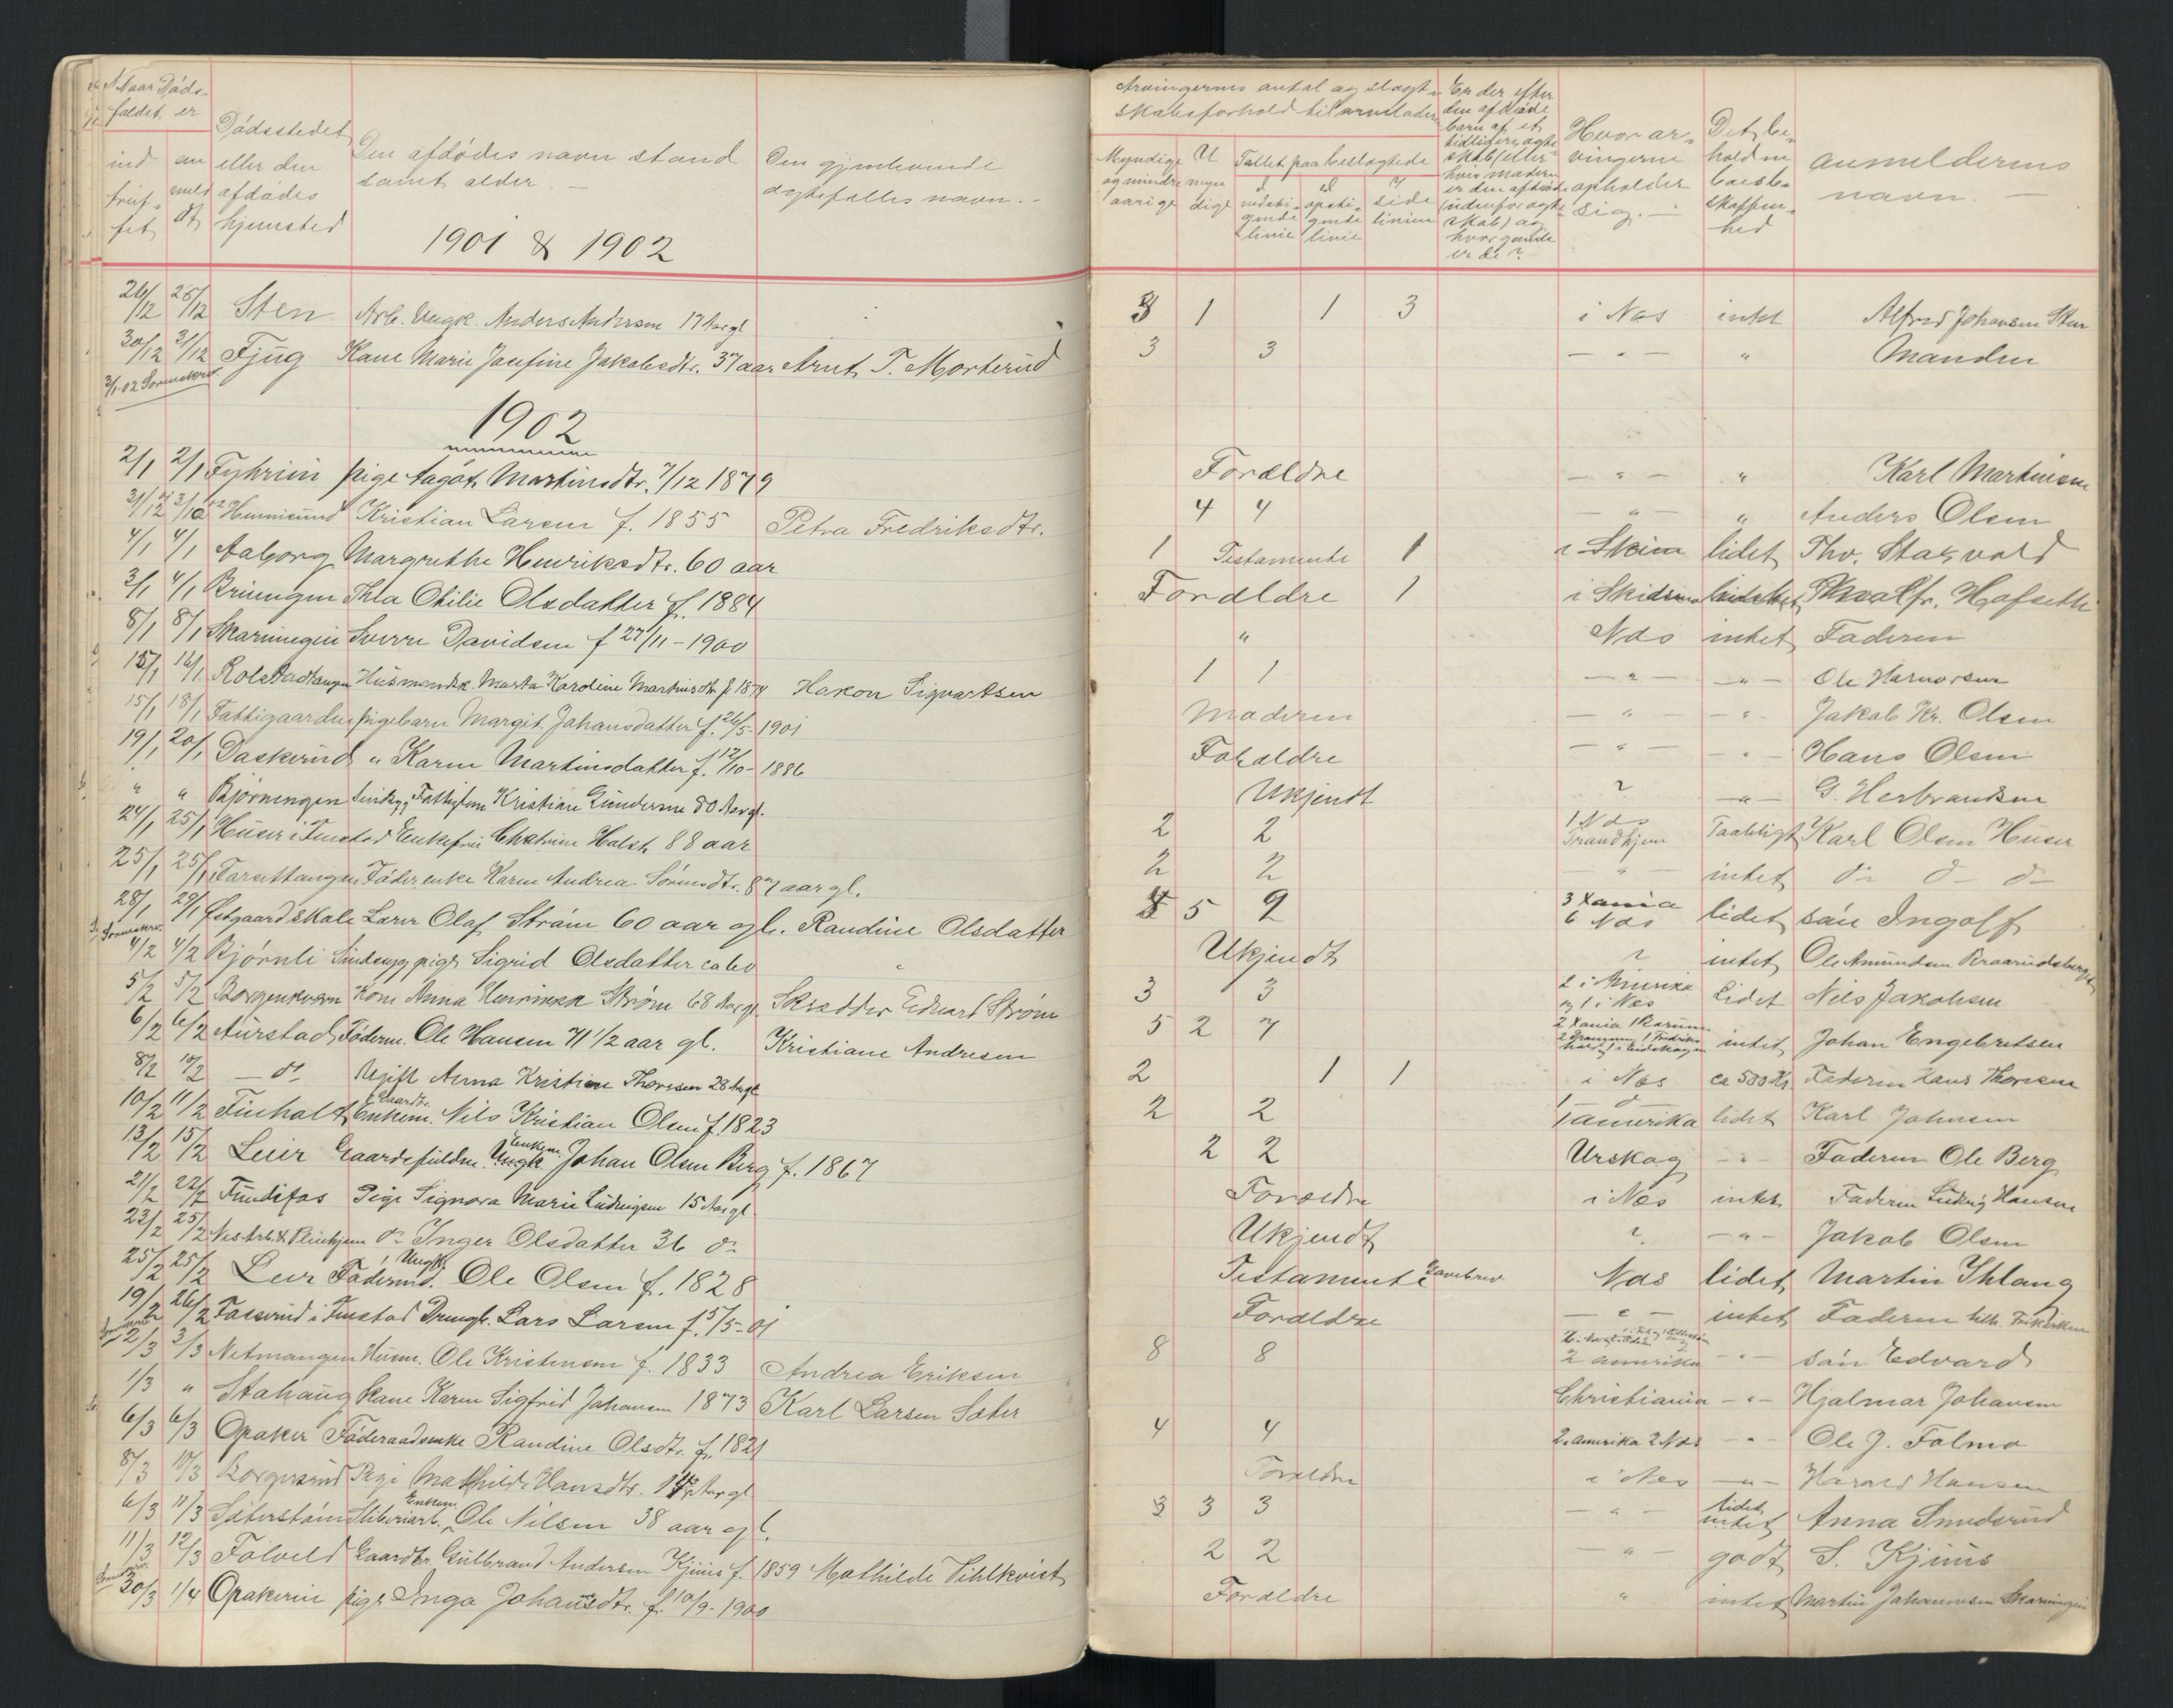 Naar Døds-
faldet er
ind
truf-
fet
an
meldt
Dødsstedet
eller den
afdødes
hjemsted
Den afdødes navn stand
samt alder. —
Den gjenlevende
ægtefælles navn. —
1901 & 1902
Arvingernes antal og slægt-
skabsforhold til arveladeren
Myndige
og mindre
aarige
U
myn
dige
Tallet paa beslægtede
i
nedsti-
gende
linie
i
opsti-
gende
linie
i
side
linien
Er der efter
den afdøde
barn af et
tidligere ægte
skab (eller
hvis moderen
er den afdøde
(udenfor ægte
skab) og
hvor gamle
er de?
Hvor ar-
vingerne
opholder
sig. —
Det be-
holdne
boes be-
skaffen-
hed
anmelderens
navn. —
26/12 26/12 Sten Arb. Ungk. Anders Andersen 17 Aar gl 3 1 1 3 i Nes intet Alfred Johansen Sten
30/12 31/12 Fjug Kone Marie Josefine Jakobsdtr. 37 aar Arnt T. Morterud 3 3 — " — " Manden
1902
2/1 2/1 Fyhriie pige Aagot Martinsdtr. 7/12 1879 Forældre — " — " Karl Martinsen
31/12 3/1 02 Hunnesund Kristian Larsen f. 1855 Petra Fredriksdtr. 4 4 — " — " Anders Olsen
4/1 4/1 Aaborg Margrethe Henriksdtr. 60 aar 1 Testamente 1 i Skien lidet Thv. Starvold
3/1 4/1 Thla Otilie Olsdatter f. 1884 Forældre 1 Hofseth
8/1 8/1 Skarningen Sverre Davidsen f 27/11 - 1900 " Næs intet Faderen
15/1 16/1 Rolstadtangen Husmandsk. Marta Karoline Martinsdtr f 1874 Hakon Sigvartsen 1 1 — " — — " — Ole Halvorsen
15/1 18/1 Fattigaarden pigebarn Margit Johansdatter f. 26/5 - 1901 Moderen — " — — " — Jakob Kr. Olsen
19/1 20/1 Daskerud " Karen Martinsdatter f. 12/10 - 1886 Forældre — " — — " — Hans Olsen
" " Bjørningen Sindssyg Fattiglem Kristian Gundersen 80 Aar gl. Ukjendt ? — " — G. Herbrandsen
24/1 25/1 Huser i Funstad Enkefru Chatrine Holst 88 aar 2 2 1 Næs Trondhjem Taaleligt Karl Olsen Huser
25/1 25/1 Farsettangen Føder.enke Karen Andrea Sørensdtr. 87 aar gl. 2 2 " intet do do do
28/1 29/1 Østgaard skole Lærer Olaf Strøm 60 aar gl. Randine Olsdatter 5 9 3 Xania 6 Næs lidet søn Ingolf
4/2 4/2 Bjørnli Sindssyg pige Sigrid Olsdatter ca 60 " Ukjendt ? intet Ole Amundsen Braarudsberget
5/2 5/2 Borgenkvern Kone Anna Henrikka Strøm 68 Aar gl Skrædder Edvard Strøm 3 3 2 i Amerika og 1 i Næs Lidet Nils Jakobsen
6/2 6/2 Aurstad Føderm. Ole Hansen 71 1/2 aar gl. Kristiane Andresen 5 2 7 2 Xania intet Johan Engebretsen
8/2 10/2 — do Ugift Anna Kristine Thoresen 28 Aar gl 2 1 1 i Næs ca 500 Kr Faderen Hans Thoresen
10/2 11/2 Finholt Gaardbr. Enkem. Nils Kristian Olsen f. 1823 2 2 1 amerika lidet Karl Johnsen
13/2 15/2 Leier Gaardsfuldm. Enkem. Johan Olsen Berg f. 1867 2 2 Urskog — " — Faderen Ole Berg
21/2 22/2 Fundifos Pige Signora Marie Ludvigsen 15 Aar gl Forældre i Næs intet Faderen Ludvig Hansen
23/2 25/2 Nes Arb. & Pleiehjem do Inger Olsdatter 36 do Ukjendt ? — " — Jakob Olsen
25/2 25/2 Leir Ungk. Fødermd. Ole Olsen f. 1828 Testamente Gavebrev Næs lidet Martin Ihlang
19/2 26/2 Fosserud i Funstad Drengb. Lars Larsen f. 5/5 - 01 Forældre — " — intet Faderen
2/3 3/3 Netmangen Husm. Ole Kristensen f. 1833 Andrea Eriksen 8 8 2 amerika — " — søn Edvard
1/3 " Stahaug Kone Karen Sigfrid Johansen 1873 Karl Larsen Sæter Christiania — " — Hjalmar Johansen
6/3 6/3 Opaker Føderaadsenke Randine Olsdtr. f. 1821 4 4 2. amerika 2 Næs — " — Ole J. Folmo
8/3 10/3 Borgersrud Pige Mathilde Hansdtr. Aar gl Forældre i Næs — " — Harald Hansen
6/3 11/3 Sæterstøen Enkem. Sliberiarb. Ole Nilsen 38 aar gl. 3 3 3 — " — lidet intet Anna Smedsrud
11/3 12/3 Folveld Gaardbr. Gulbrand Andersen Kjuus f. 1859 Mathilde Pihlkvist 2 2 — " — godt S. Kjuus
30/3 1/4 Opakerie pige Inga Johansdtr. f. 10/9 - 1900 Forældre " intet Martin Johannesen Skarningen